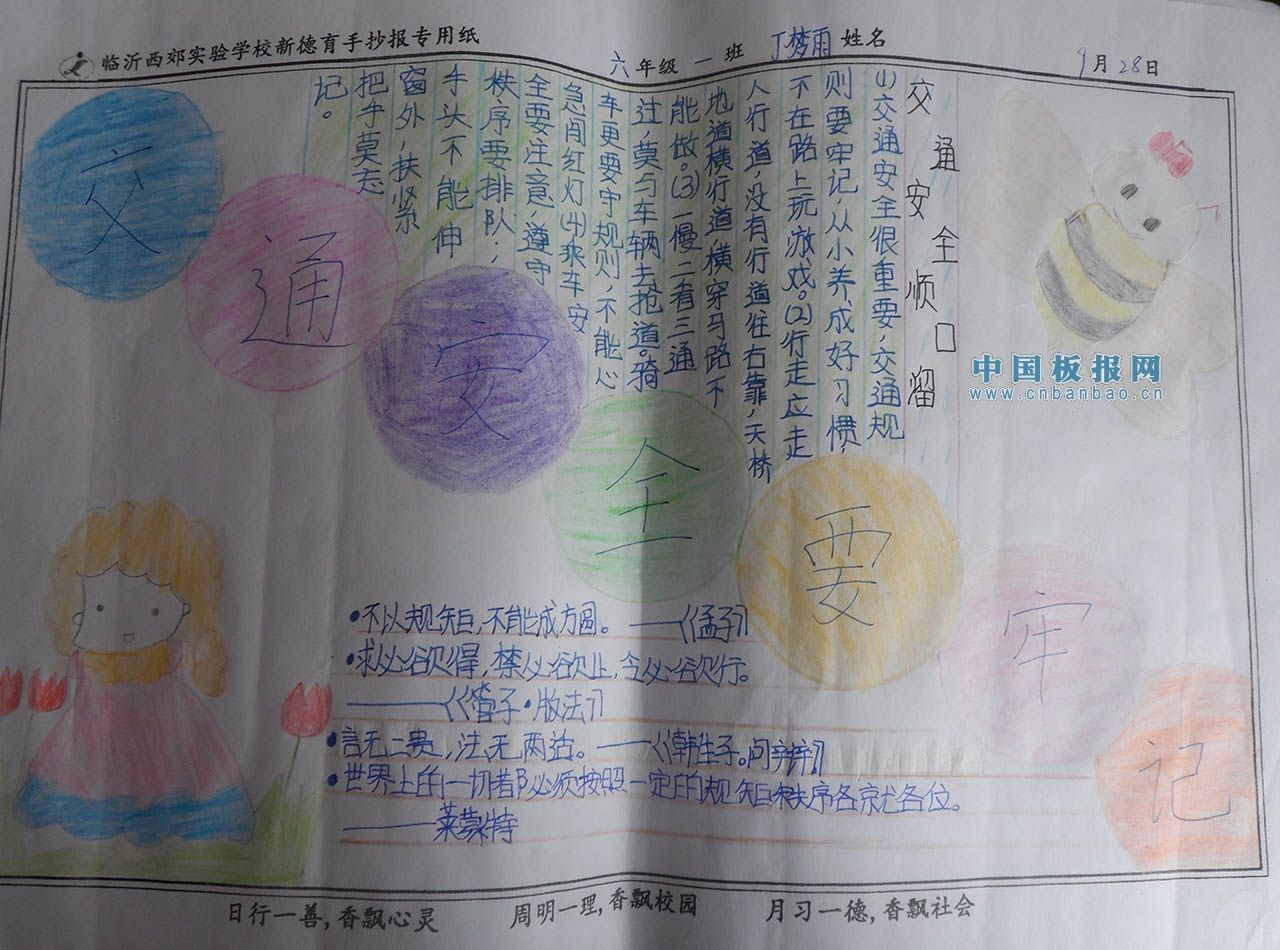 临沂西郊实验学校新德育手抄报专用纸
六年级 一 班 丁梦雨 姓名
9月28日
交通安全要牢记
交通安全顺口溜
(1)交通安全很重要,交通规
则要牢记,从小养成好习惯,
不在路上玩游戏。(2)行走应走
人行道,没有行道往右靠,天桥
地道横行道横穿马路不
能做。(3)一慢二看三通
过,莫与车辆去抢道。骑
车更要守规则,不能心
急闯红灯(4)乘车安
全要注意,遵守
秩序要排队;
手头不能伸
窗外,扶紧
把手莫忘
记。
中国板报网
www.cnbanbao.cn
•不以规矩,不能成方圆。——《孟子》
•求必欲得,禁必欲止,令必欲行。
——《管子•版法》
•言无二贵,法无两适。——《韩非子。问辩》
•世界上的一切都必须按照一定的规矩秩序各就各位。
——莱蒙特
日行一善,香飘心灵 周明一理,香飘校园 月习一德,香飘社会